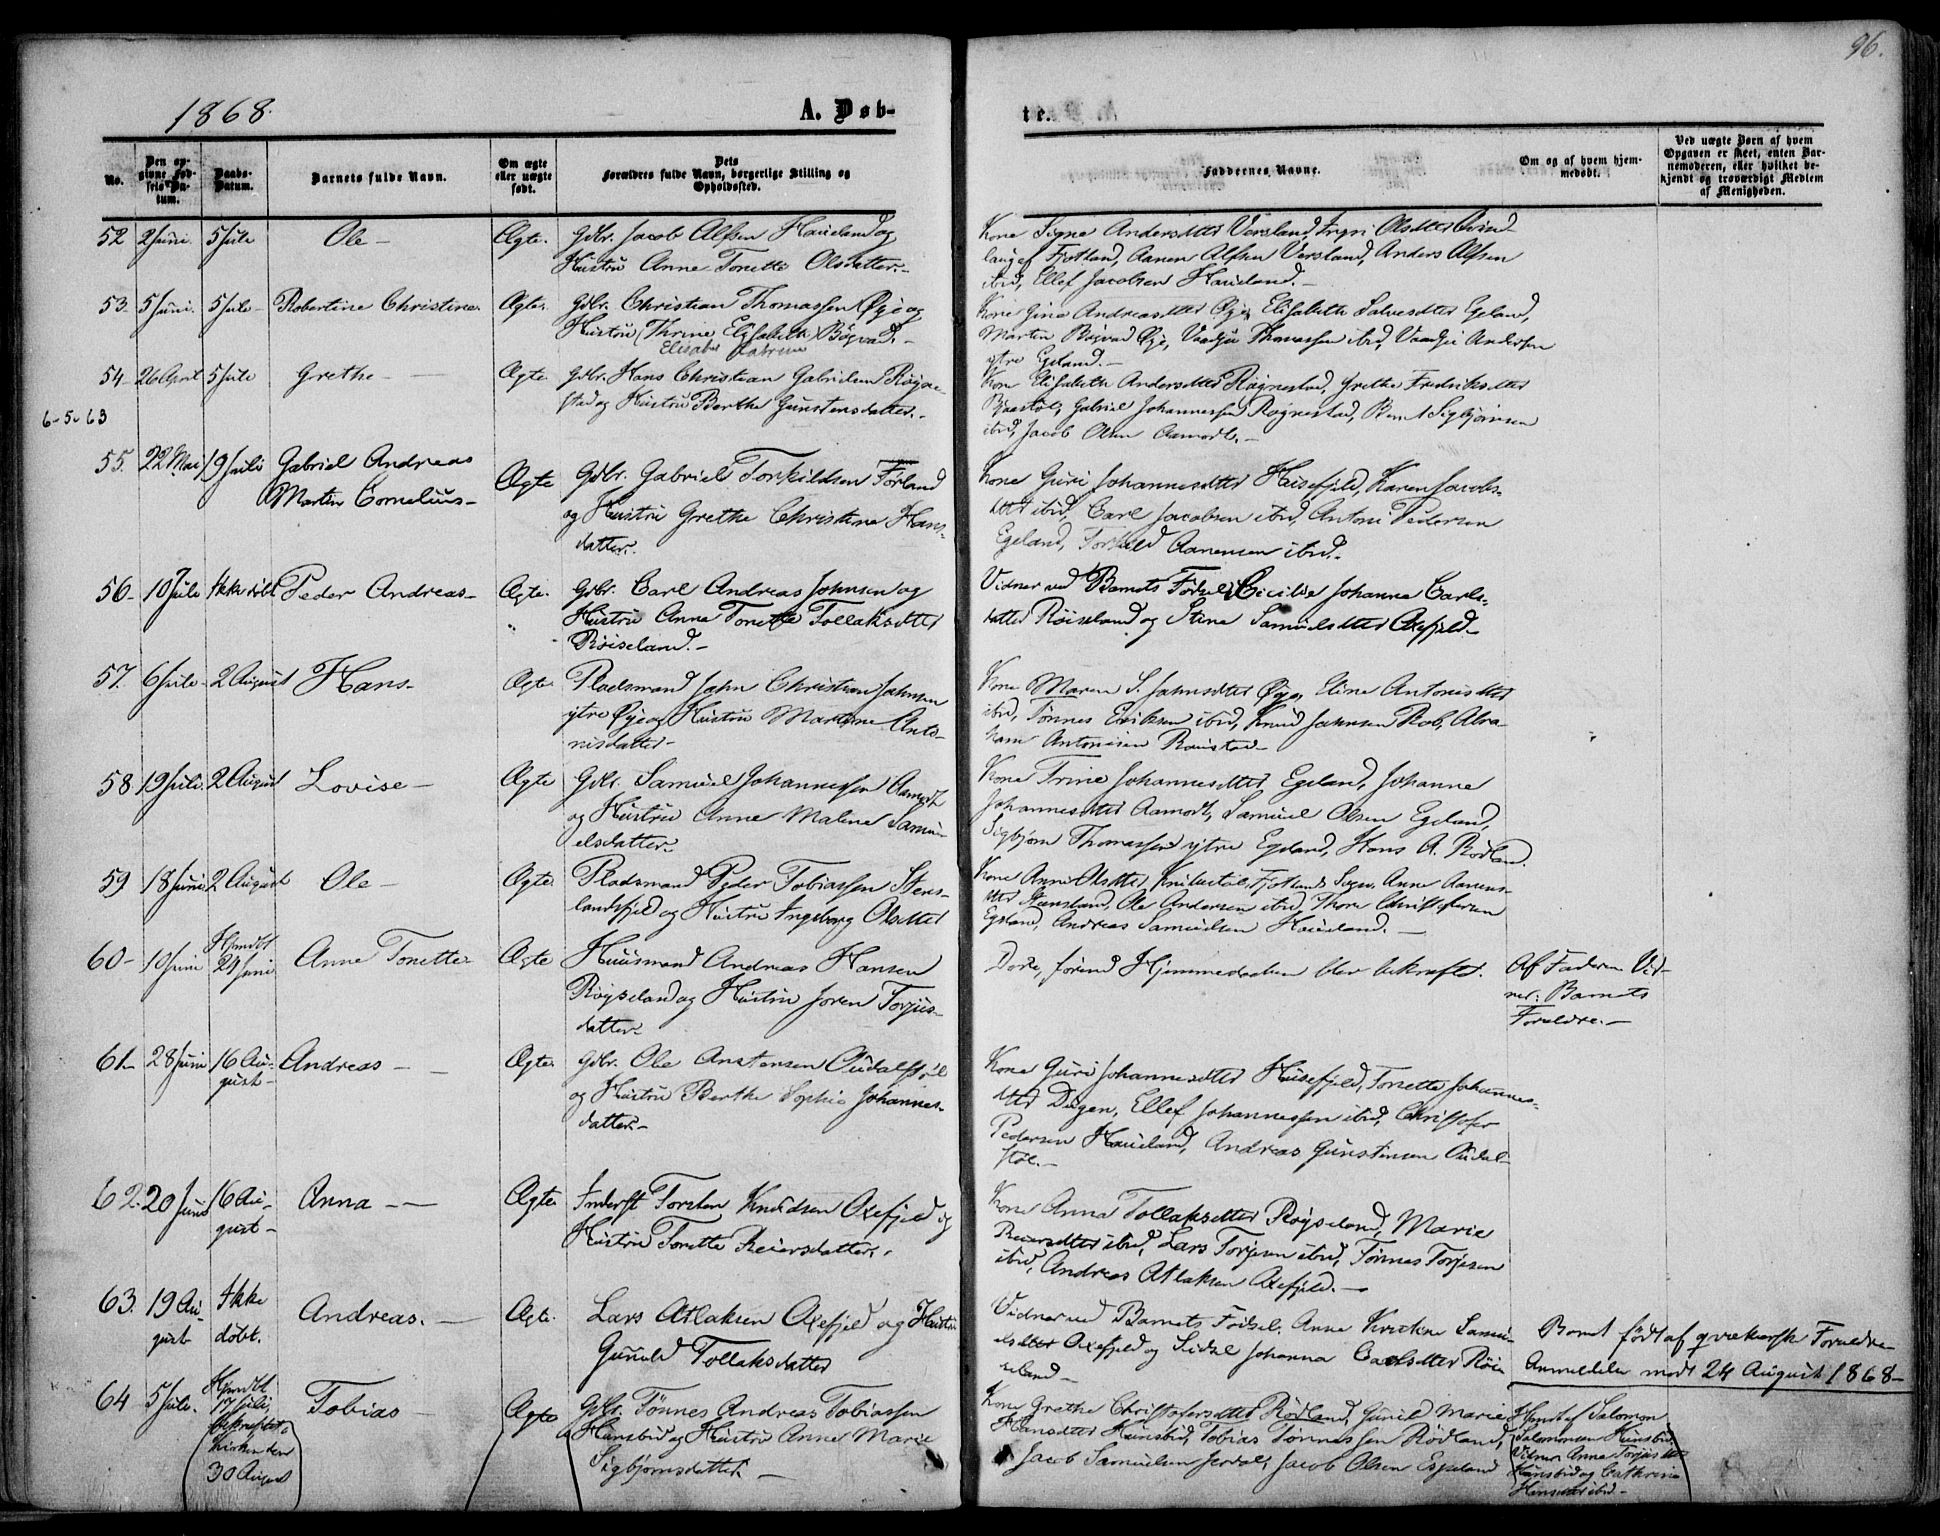 96.
1868.
A. Døb-
te.
No.
Den op-
givne Fød-
sels Da-
tum.
Daabs-
Datum.
Barnets fulde Navn.
Om ægte
eller uægte
født.
Dets
Forældres fulde Navn, borgerlige Stilling og
Opholdssted.
Faddernes Navne.
Om og af hvem hjem-
medøbt.
Ved uægte Børn af hvem
Opgaven er skeet, enten Bar-
nemoderen, eller hvilket be-
kjendt og troværdigt Medlem
af Menigheden.
52 2 Juni. 5 Jule Ole - Ægte. Gdbr. Jacob Alfsen Haueland og
Hustru Anne Tonette Olsdatter.-
Kone Signe Andersdtter Versland, Ingri Olsdtter
Fjotland, Aanen Alfsen Versland, Anders Alfsen
ibid, Ellef Jacobsen Haueland.-
53. 5 Juni. 5 Jule- Robertine Christine. Ægte. Gdbr. Christian Thomassen Øye og
Hustru Thrine Elisabeth Bøgvad.-
Elisabet Katrine
Kone Gina Andreasdtter Øye, Elisabeth Salvesdtter Egeland,
Martin Bøgvad Øye, Vaadje Thomassen ibid, Vaadje Andersen
ytre Egeland.-
54. 26 April 5 Jule Grethe - Ægte Gdbr. Hans Christian Gabrielsen Røgne-
sted og Hustru Berthe Gunstensdatter.-
Kone Elisabeth Andersdtter Røgnestad, Grethe Fredriksdtter
Bjaastøl, Gabriel Johannessen Røgnestad, Bernt Sigbjørnsen
ibid, Jacob Olsen Aamodt.-
6-5-63
55. 22 Mai 19 Juli Gabriel Andreas
Martin Cornelius- Ægte Gdbr. Gabriel Torkildsen Førland
og Hustru Grethe Christine Hans-
datter.
Kone Guri Johannesdtter Husefjeld, Karen Jacobs-
dtt ibid, Carl Jacobsen ibid, Antoni Pedersen
Egeland, Torkild Aanensen ibid.-
56- 10 Jule Ikke døbt Peder Andreas- Ægte. Gdbr. Carl Andreas Johnsen og
Hustru Anna Tonette Tollaksdtter
Røiseland.-
Vidner ved Barnets Fødsel: Cicilie Johanna Carls-
datter Røiseland og Stine Samuelsdtter Oxefjeld-
57. 6 Jule- 2 August Hans- Ægte. Pladsmand John Christian Johnsen
ytre Øye og Hustru Martine Anto-
nisdatter-
Kone Maren S. Johnsdtter Øye, Eline Antonisdtter
ibid, Tønnes Eriksen ibid, Knud Johnsen Rob, Abra-
ham Antonisen
58 19 Jule. 2 August Lovise - Ægte Gdbr. Samuel Johannessen Aamodt
og Hustru Anne Malene Samu-
elsdatter.
Kone Trine Johannesdtter Egeland, Johanne
Johannesdtter Aamodt, Samuel Olsen Egeland,
Sigbjørn Thomassen ytre Egeland, Hans A. Rødland.
59 18 Juni 2 August Ole - Ægte. Pladsmand Peder Tobiassen Stens-
landsfjeld og Hustru Ingeborg Olsdtter
Kone Anne Olsdtter Fjotlands Sogn, Anne Aanens-
dtt Steensland, Ole Andersen ibid, Thore Christophersen
Egeland, Andreas Samuelsen Haueland.-
60- 10 Juni Hjmdbt
29 Juni Anne Tonette Ægte Huusmand Andreas Hansen
Røyseland og Hustru Joren Torjus-
datter-
Døde, førend Hjemmedaaben blev bekræftet.
Af Faderen. Vid-
ner: Barnets
Forældre.-
61- 28 Juni 16 Au-
gust- Andreas - - Ægte. Gdbr. Ole Anstensen Oudalstøl
og Hustru Berthe Sophie Johannes-
datter.-
Kone Guri Johannesdtter Husefjeld, Tonette Johannes-
dtt Dugen, Ellef Johannessen ibid, Christoffer
Pedersen Haueland, Andreas Gunstensen Oudal-
støl.-
62. 20 Juni 16 Au-
gust- Anna - - Ægte. Inderst Torsten Knudsen Oxefjeld og
Hustru Tonette Reiersdatter.
Kone Anna Tollaksdtter Røyseland, Marie
Reiersdtter ibid, Lars Torjesen ibid, Tønnes Torjesen
ibid, Andreas Atlaksen Oxefjeld.-
63. 19 Au-
gust Ikke
døbt. Andreas. - Ægte. Lars Atlaksen Oxefjeld og Hustru
Gunild Tollaksdatter
Vidner ved Barnets Fødsel: Anne Samu-
elsdtter Oxefjeld og Sidsel Johanna Carlsdtter Røi-
seland-
Barnet født af qvækerske Forældre-
Anmeldelse modt 24 August 1868-
64 5 Jule. Hjmdbt
17 Juli,
bekræftet i
Kirken den
30 August Tobias Ægte Gdbr. Tønnes Andreas Tobiassen
Hunsbed og Hustru Anne Marie
Sigbjørnsdatter. -
Kone Grethe Christophersdtter Rødland, Gunild Marie
Hansdtter Hunsbed, Tobias Tønnessen Rødland,
Jacob Samuelsen Jordal, Jacob Olsen Espeland
Hjmdbt af Salomon
Salomonsen Hunsbed.
Vidner: Anna Torjusdtt
Hunsbed og Cathrine
Hansdtter ibid-